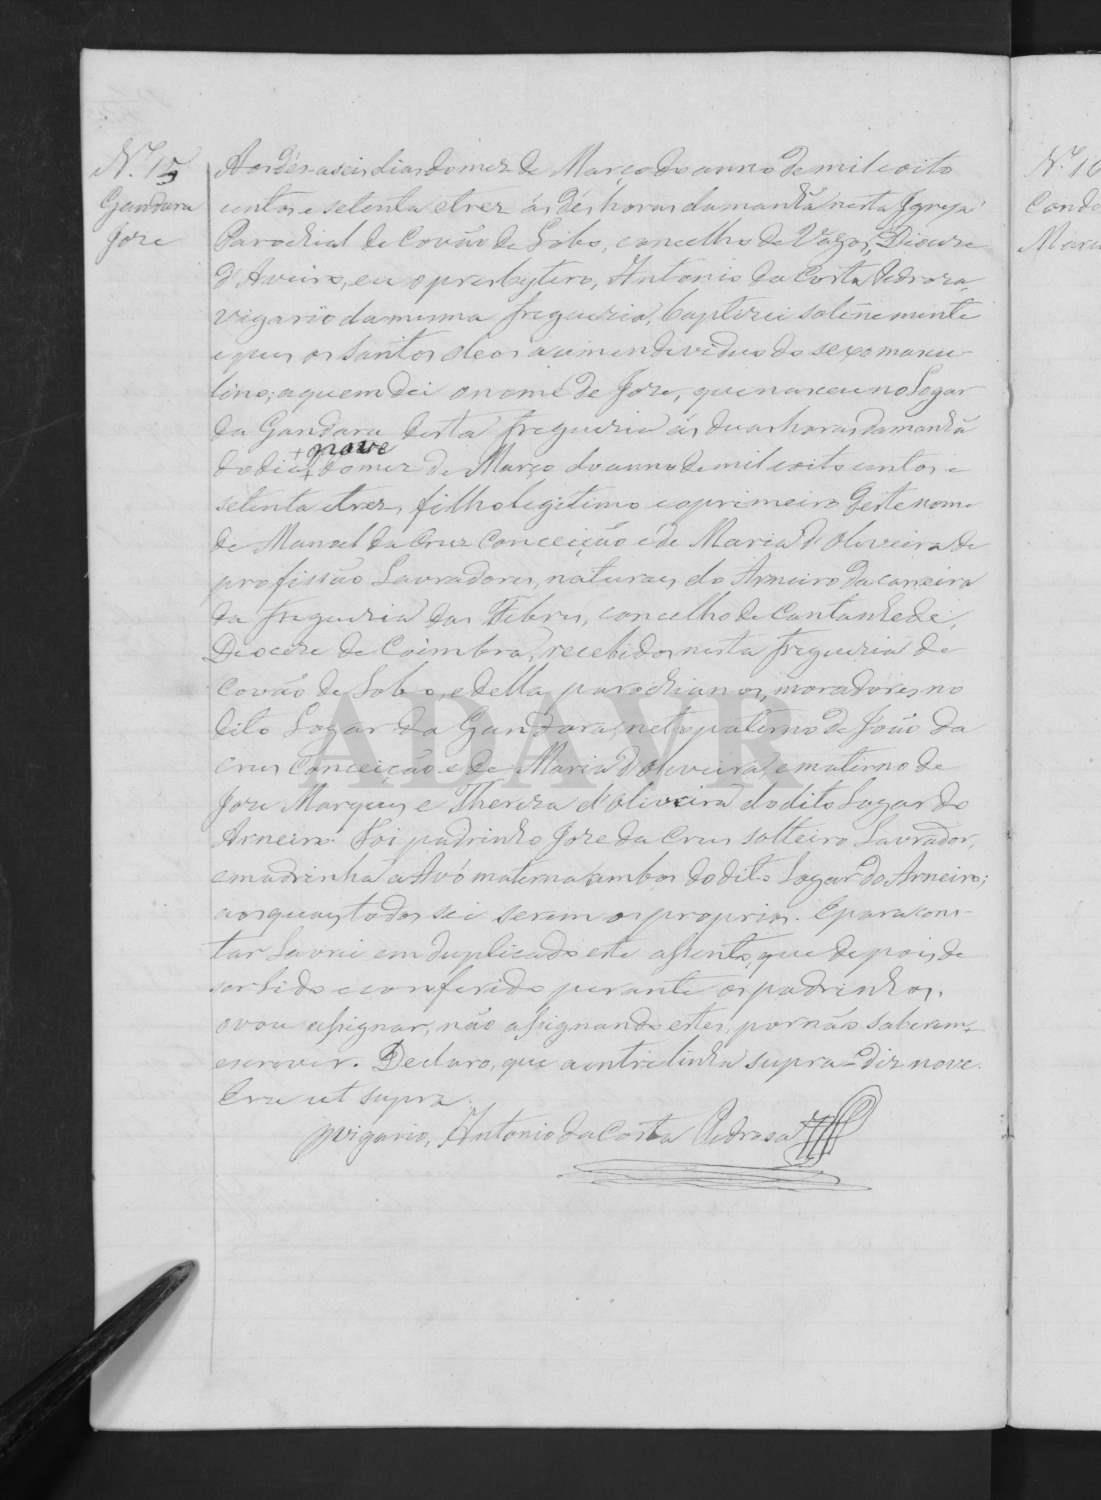 N.º 15
Gandara
Joze
Aos dés aseis dias do mez de Março do anno de mil e oito
centos e setenta e trez ás dés horas da manhã nesta Igreja
Parochial de Covão de Lobo, concelho de Vagos, Dioceze
d'Aveiro, eu o presbytero, Antonio da Costa Pedroza,
vigario da mesma freguezia, baptizei solénemente
e puz os santos oleos a um individuo do sexo mascu-
lino; a quem dei o nome de Joze, que nasceu no Logar
da Gandara desta freguezia ás duas horas da manhã
nove
do dia + do mez de Março do anno de mil e oito centos e
setenta e trez, filho legitimo e o primeiro deste nome
de Manoel da Cruz Conceição e de Maria d'Oliveira de
profissão Lavradores, naturaes do Arneiro da
da freguezia das Febres, concelho de Cantanhede,
Diocese de Coimbra, recebidos nesta freguezia de
Covão de Lobo, e della parochianos, moradores no
dito Logar da Gandara, neto paterno de João da
Cruz Conceição e de Maria d'Oliveira, e materno de
Joze Marques e Thereza d'Oliveira do dito Lugar do
Arneiro. Foi padrinho Joze da Cruz solteiro Lavrador,
e madrinha a Avó materna ambos do dito Lugar do Arneiro;
aos quaes todos sei serem os proprios. E para cons-
tar Lavrei em duplicado este assento, que depois de
ser lido e conferido perante os padrinhos,
o vou assignar, não assignando estes, por não saberem
escrever. Declaro, que a entrelinha supra diz nove.
Era ut supra.
O vigario, Antonio da Costa Pedrosa
ADAVR
N.º 16